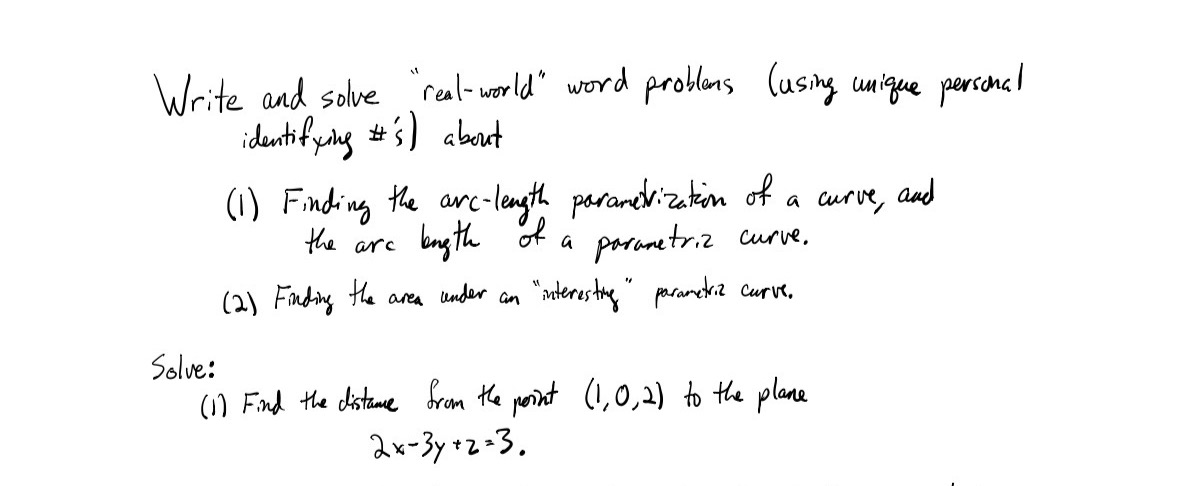 Write and solve "real-world" word problems (using unique personal
identifying #'s) about
(1) Finding the arc-length parametrization of a curve, and
the arc length of a parametric curve.
(2) Finding the area under an "interesting" parametric curve.
Solve:
(1) Find the distance from the point (1,0,2) to the plane
2x-3y+z=3.